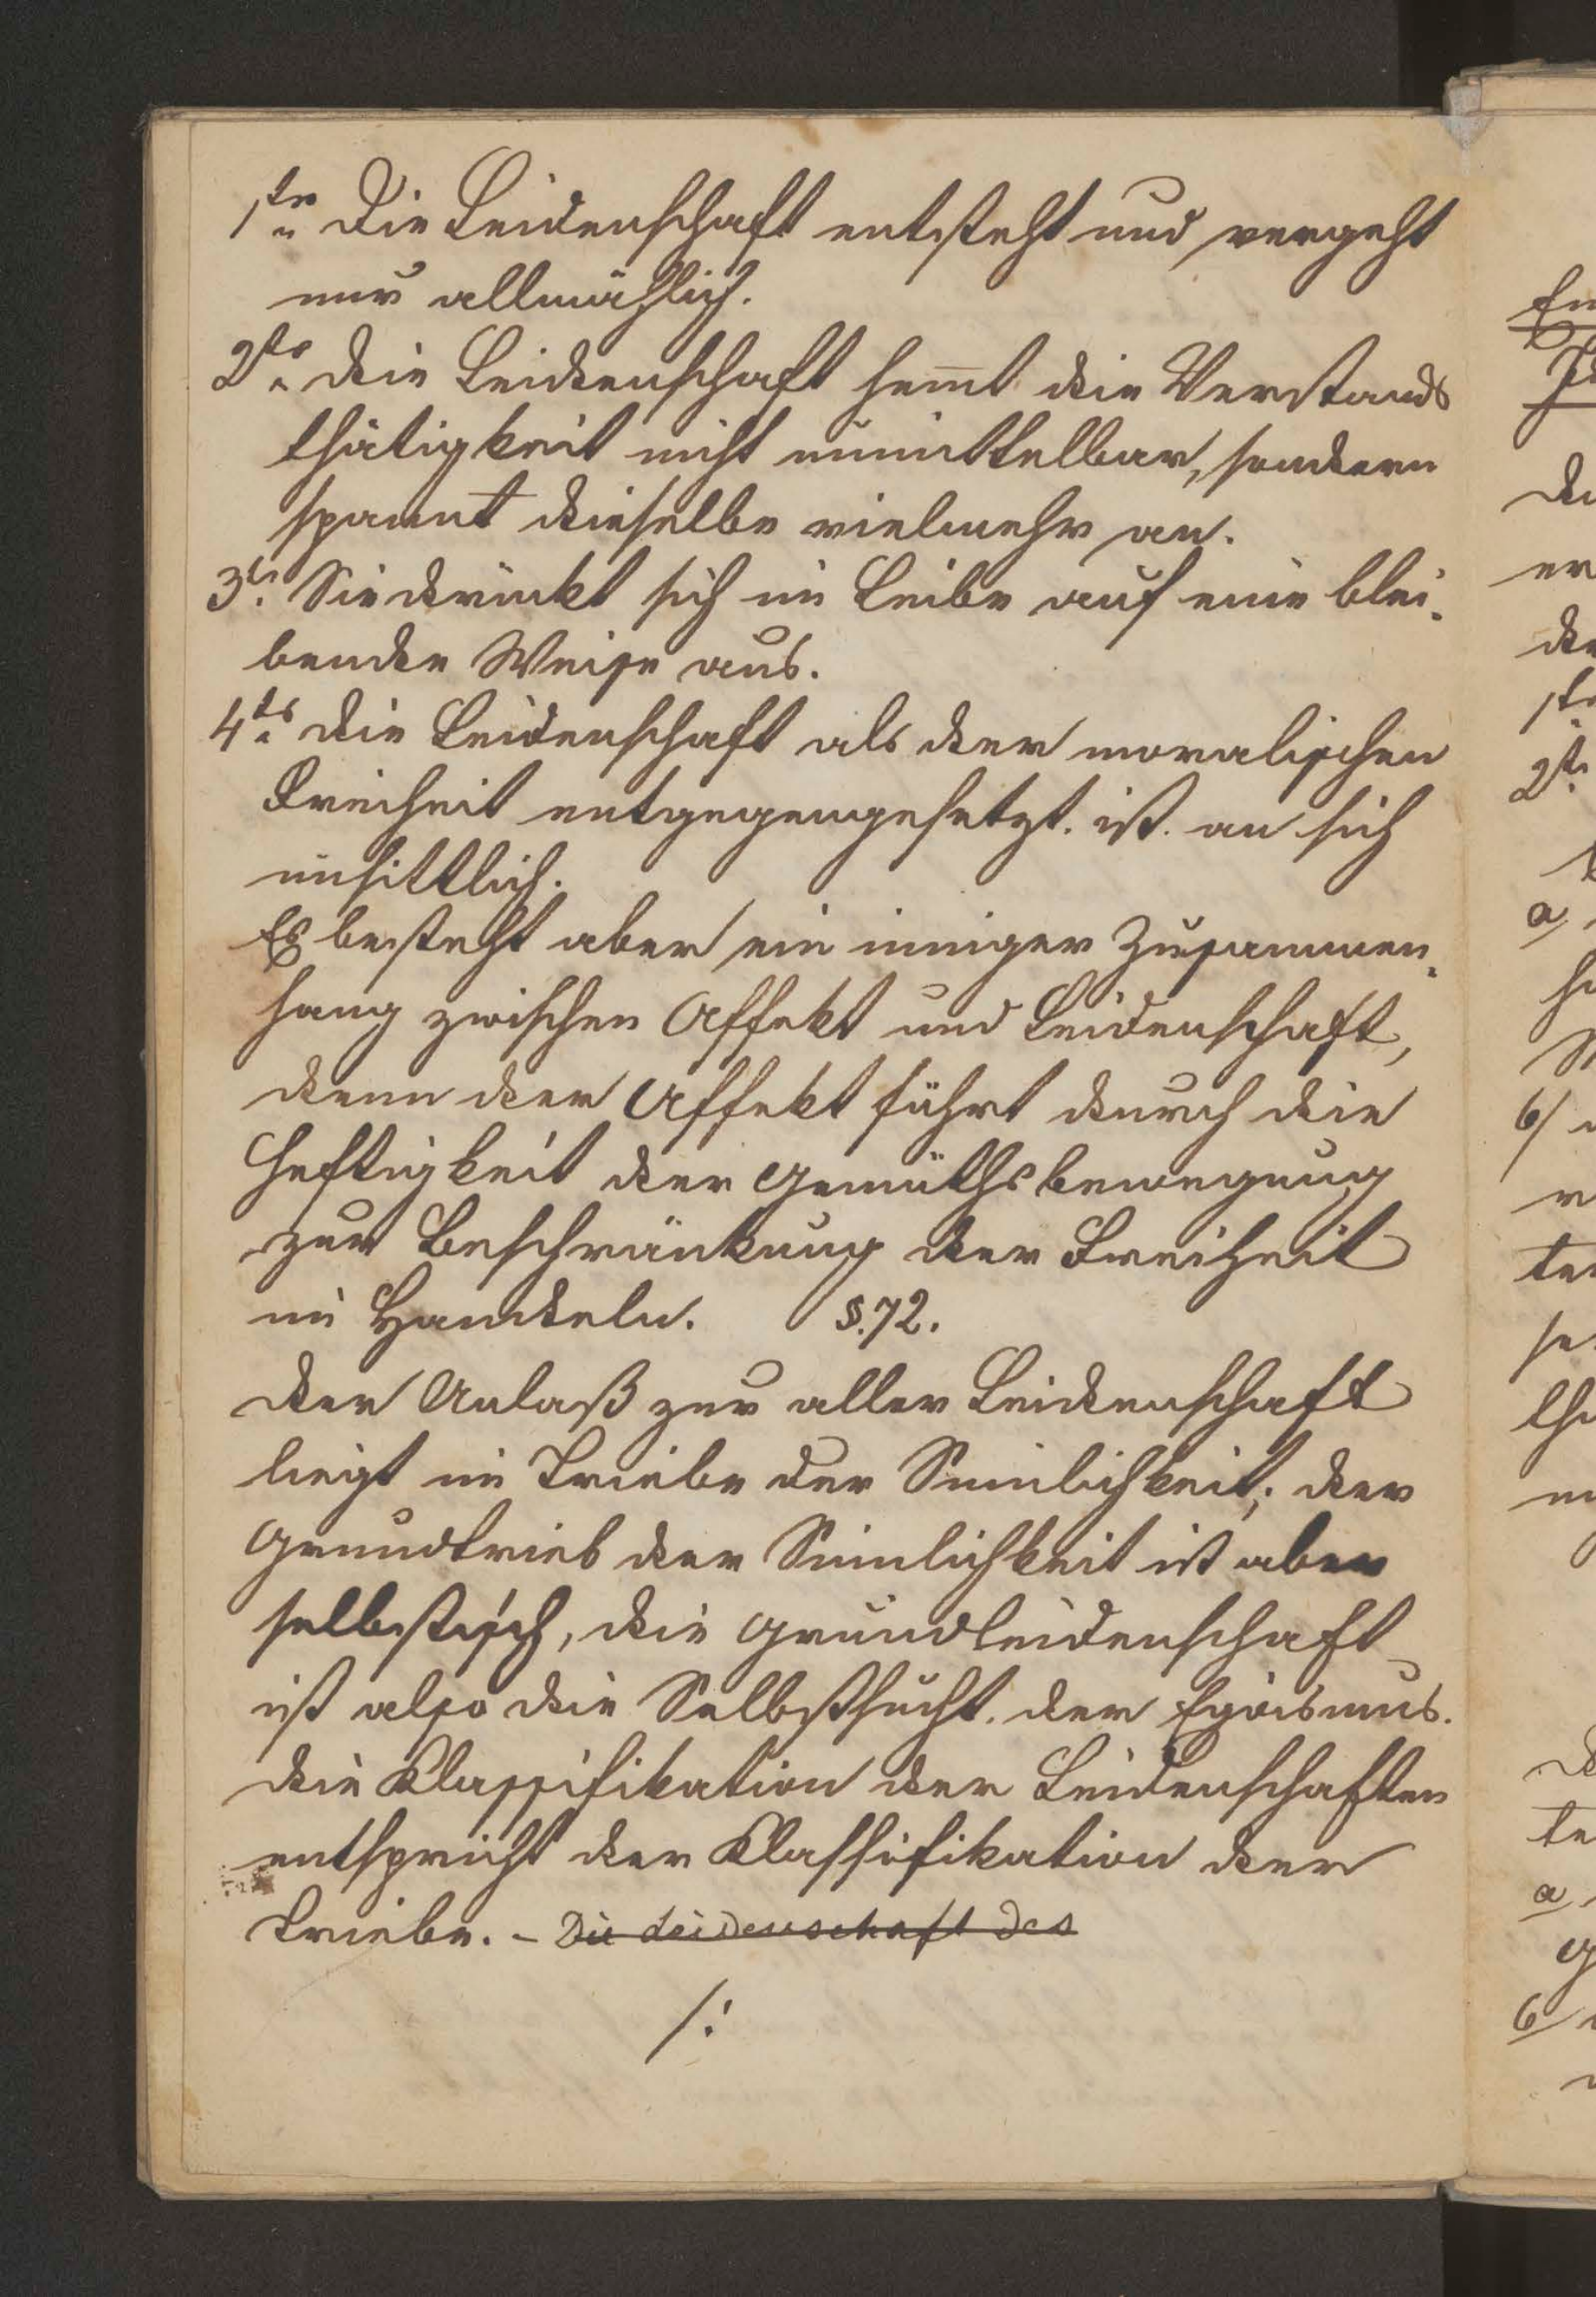 1ste Die Leidenschaft entsteht und vergeht
nur allmählich.
2te Die Leidenschaft hem̄t die Verstands
thätigkeit nicht unmittelbar, sondern
spannt dieselbe vielmehr an.
3te Sie drückt sich im Leibe auf eine blei-
bende Weise aus.
4te Die Leidenschaft als der moralischen
Freiheit entgegengesetzt. ist. an sich
unsittlich.
Es besteht aber ein inniger Zusammen-
hang zwischen Affekt und Leidenschaft,
denn der Affekt führt durch die
Heftigkeit der Gemüthsbewegung
zur Beschränkung der Freiheit
im Handeln. §.72.
Der Anlaß zur aller Leidenschaft
liegt im Triebe der Sinnlichkeit; der
Grundtrieb der Sinnlichkeit ist aber
selbstisch, die Grundleidenschaft
ist also die Selbstsucht. der Egoismus.
Die Klassifikation der Leidenschaften
entspricht der Klassifikation der
Triebe. – Die Leidenschaft des
/: